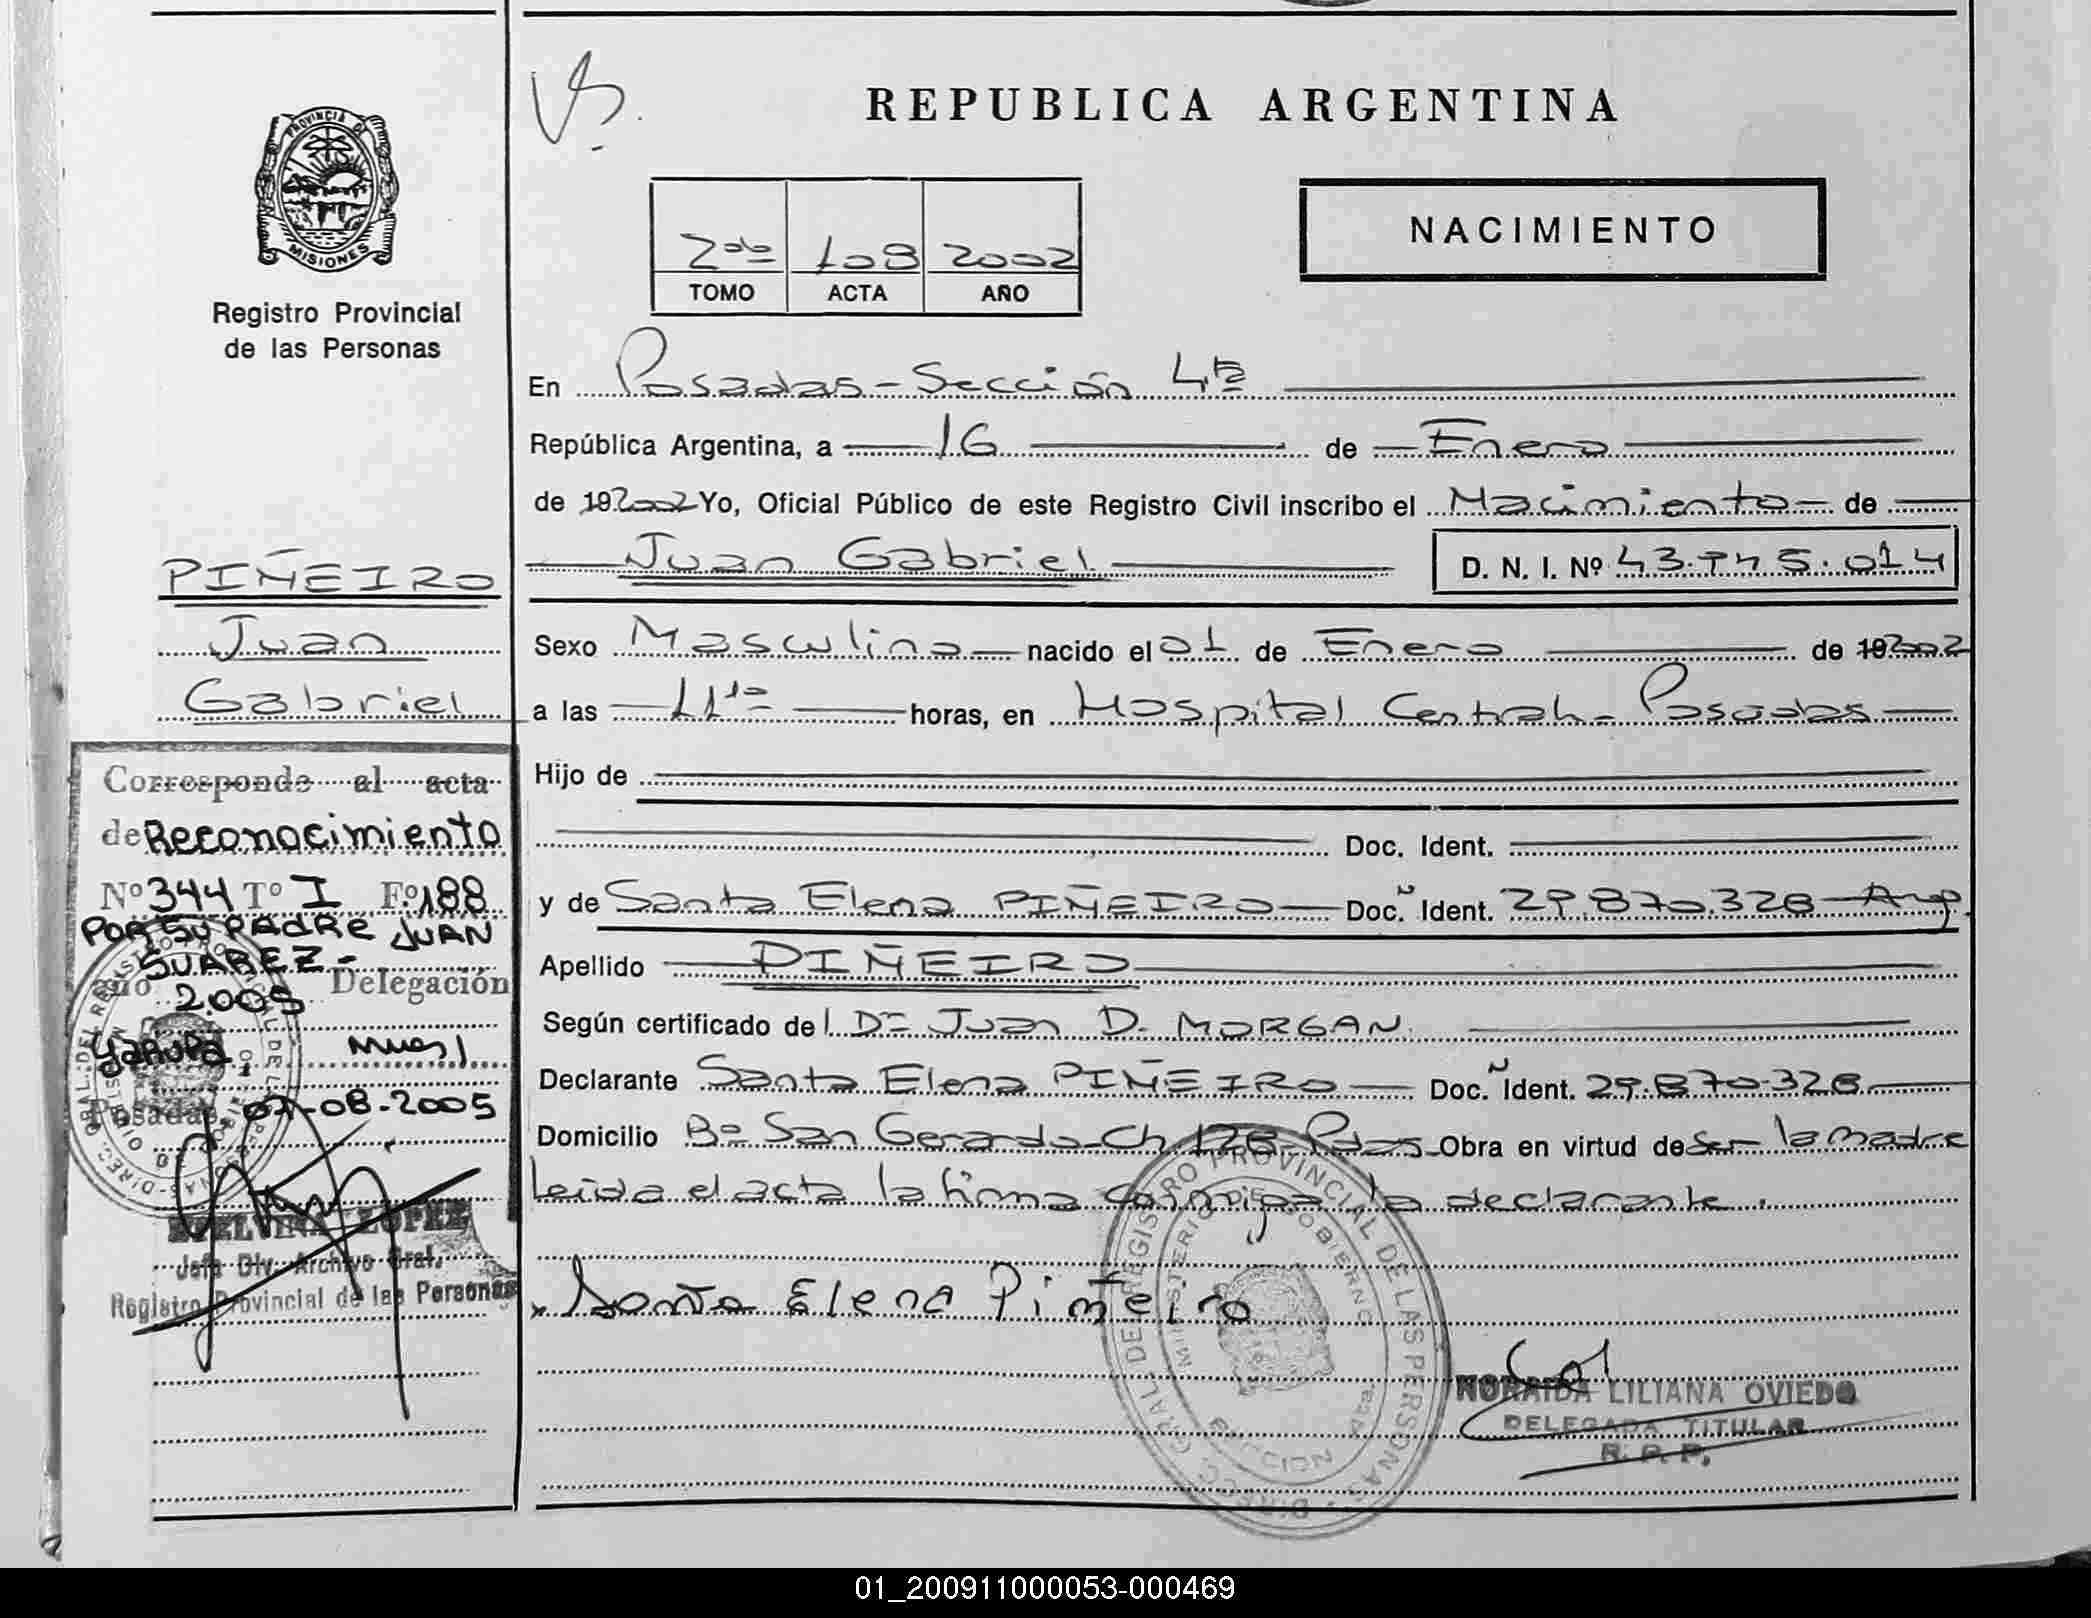 REPUBLICA ARGENTINA
PROVINCIA DE
MISIONES
Registro Provincial
de las Personas
2do 108 2002
TOMO ACTA AÑO
NACIMIENTO
En Posadas - Sección 4ta
República Argentina, a 16 de Enero
de 192002 Yo, Oficial Público de este Registro Civil inscribo el Nacimiento de
Juan Gabriel D. N. I. Nº 43.745.014
Sexo Masculino nacido el 01 de Enero de 192002
a las 11 horas, en Hospital Central - Posadas
Hijo de
Doc. Ident.
y de Santa Elena PIÑEIRO Doc. Ident. 29.870.328 Arg.
Apellido PIÑEIRO
Según certificado del Dr Juan D. MORGAN
Declarante Santa Elena PIÑEIRO Doc. Ident. 29.870.328
Domicilio Bº San Gerardo - Ch 128 Pdas Obra en virtud de Ser la madre
Leida el acta la firma conmigo la declarante.
Santa Elena Piñeiro
NORAIDA LILIANA OVIEDO
DELEGADA TITULAR
R. P. P.
DIREC. GRAL. DEL REGISTRO PROVINCIAL DE LAS PERSONAS
MINISTERIO DE GOBIERNO
SECCION
PIÑEIRO
Juan
Gabriel
Corresponde al acta
de Reconocimiento
Nº 344 Tº I Fº 188
POR SU PADRE JUAN
SUAREZ -
año 2005 Delegación
Garupá Mnes
Posadas, 01-08-2005
LOPEZ
Jefa Div. Archivo Gral.
Registro Provincial de las Personas
01_200911000053-000469